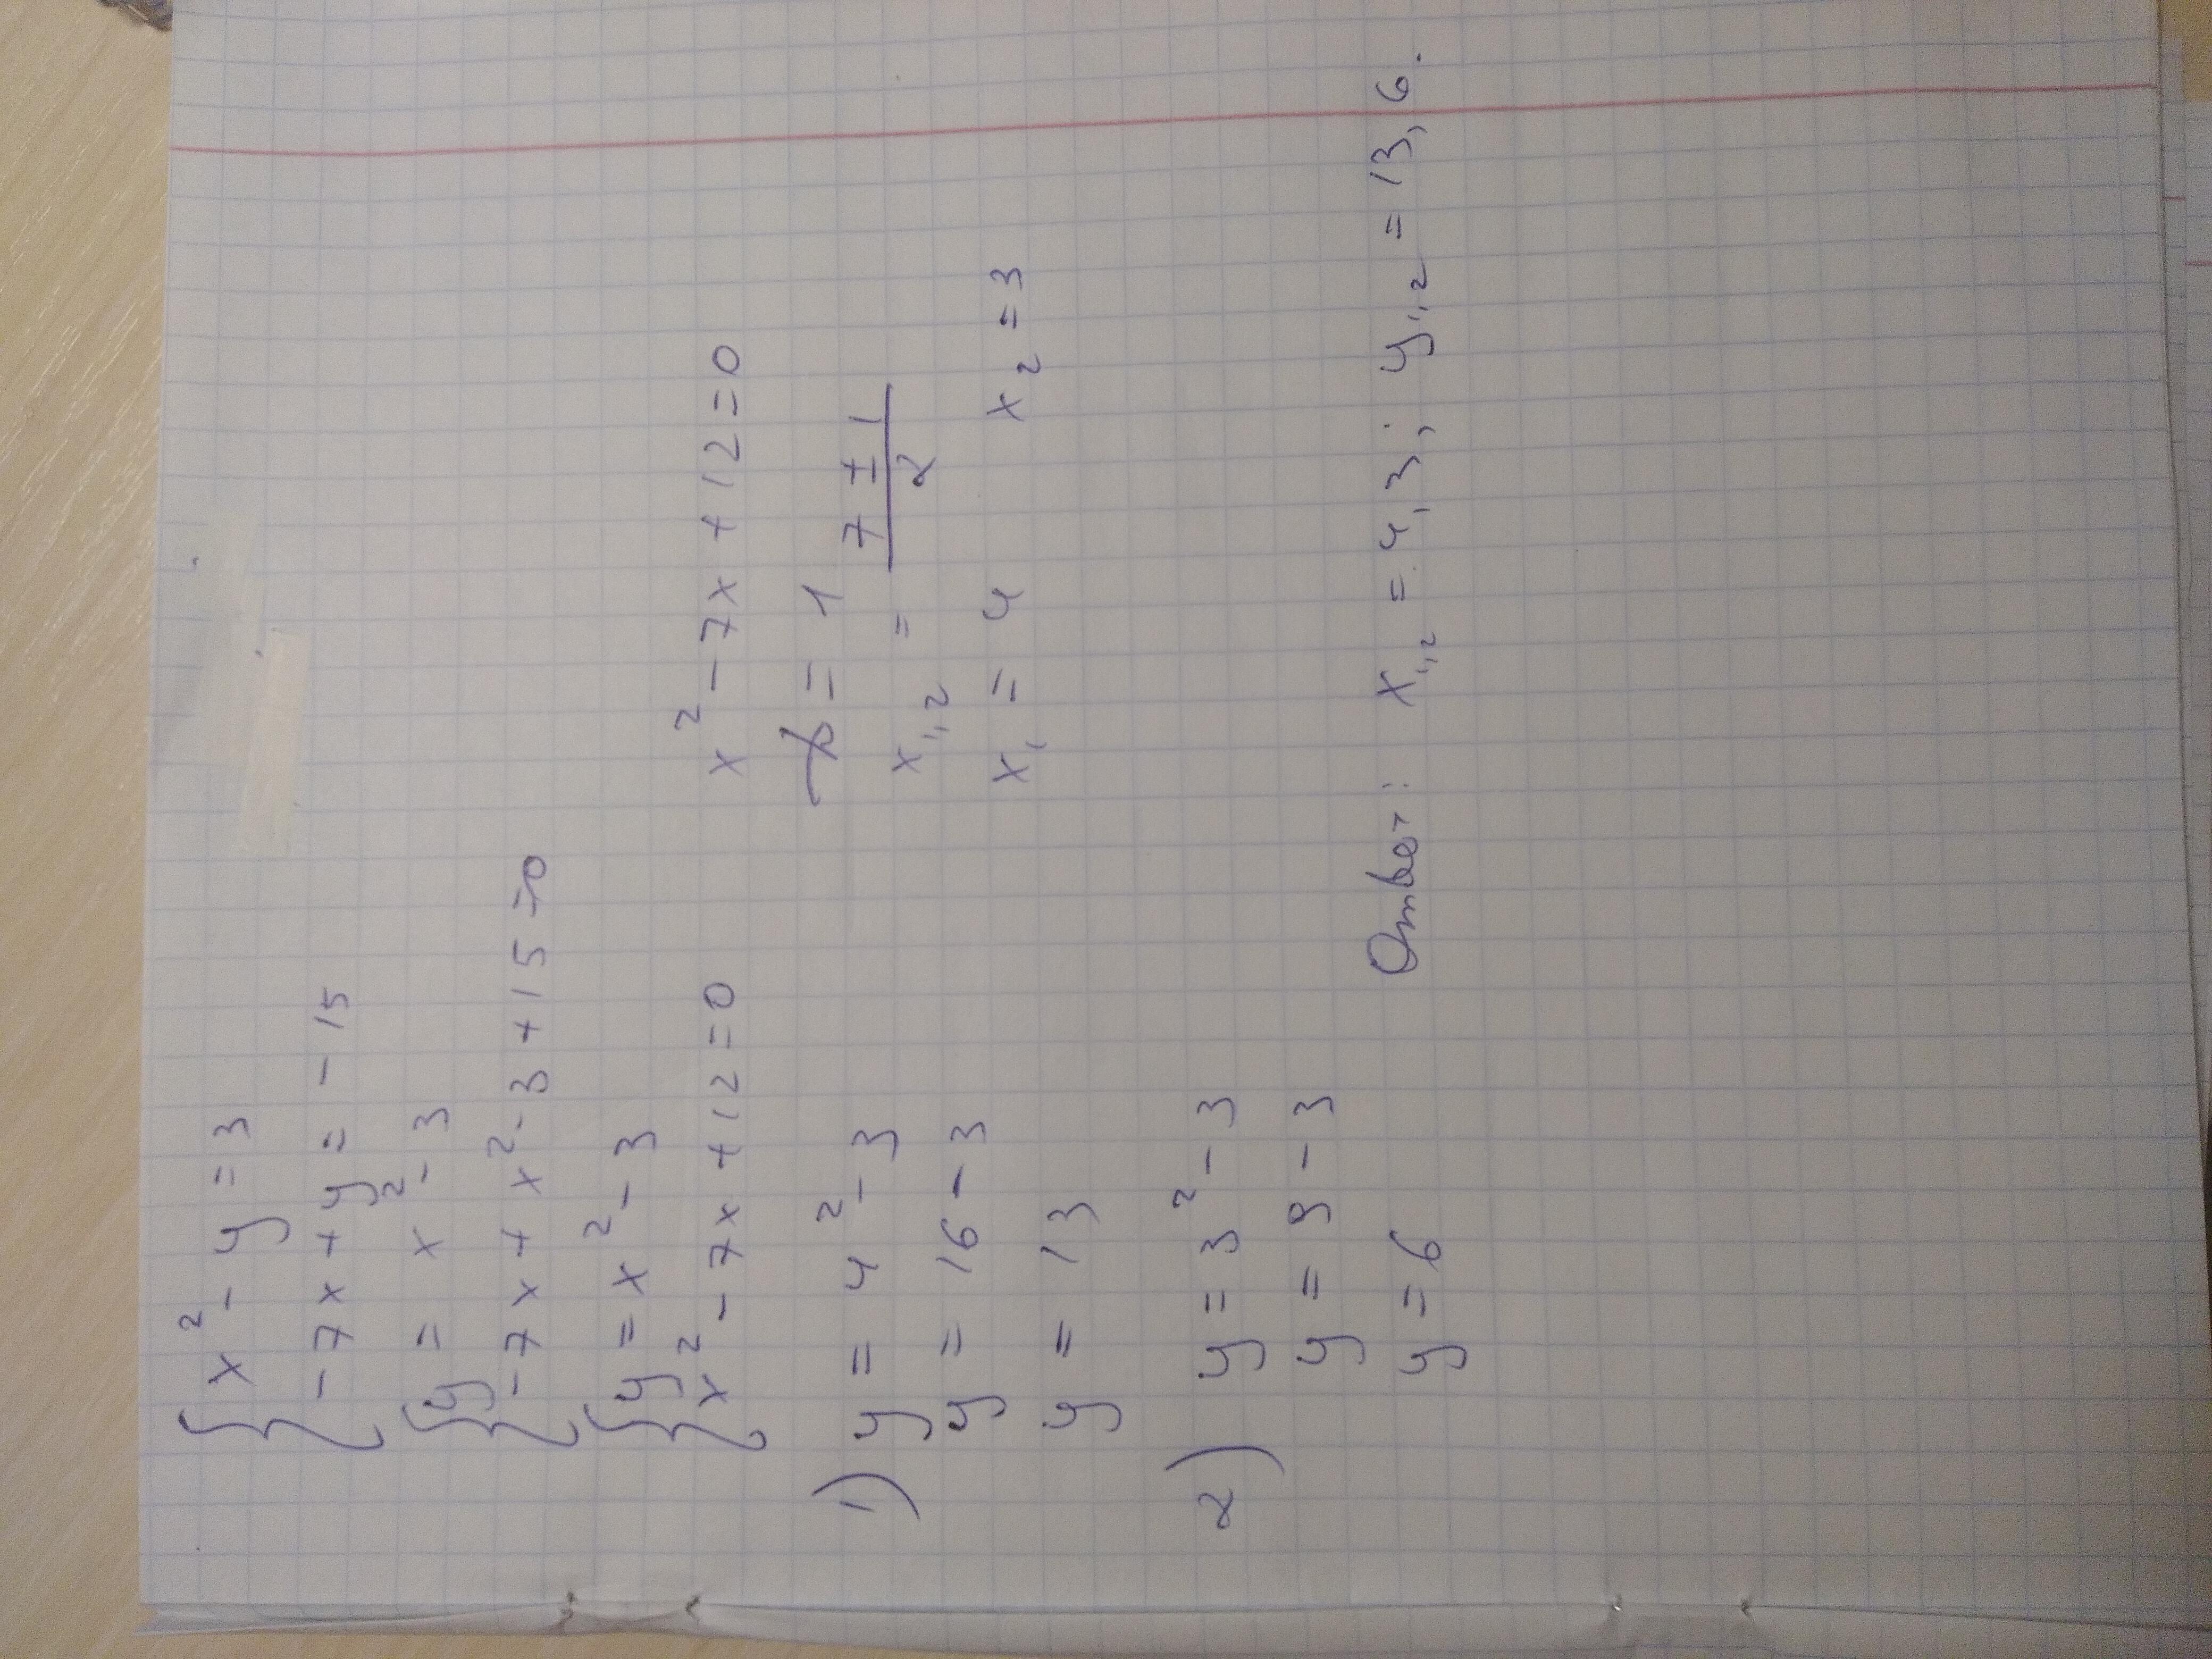 x² - y = 3
-7x + y = -15
y = x² - 3
-7x + x² - 3 + 15 = 0
y = x² - 3
x² - 7x + 12 = 0
x² - 7x + 12 = 0
D = 1
x₁,₂ = (7 ± 1)/2
x₁ = 4 x₂ = 3
1) y = 4² - 3
y = 16 - 3
y = 13
2) y = 3² - 3
y = 9 - 3
y = 6
Ответ: x₁,₂ = 4, 3; y₁,₂ = 13, 6.